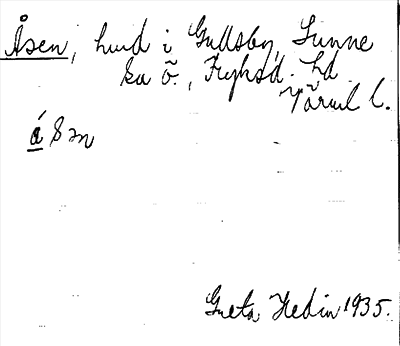 Åsen, hmd i Gullsby, Sunne
ka ö., Fryksd. hd
Värml l.
å sn
Greta Hedin 1935.